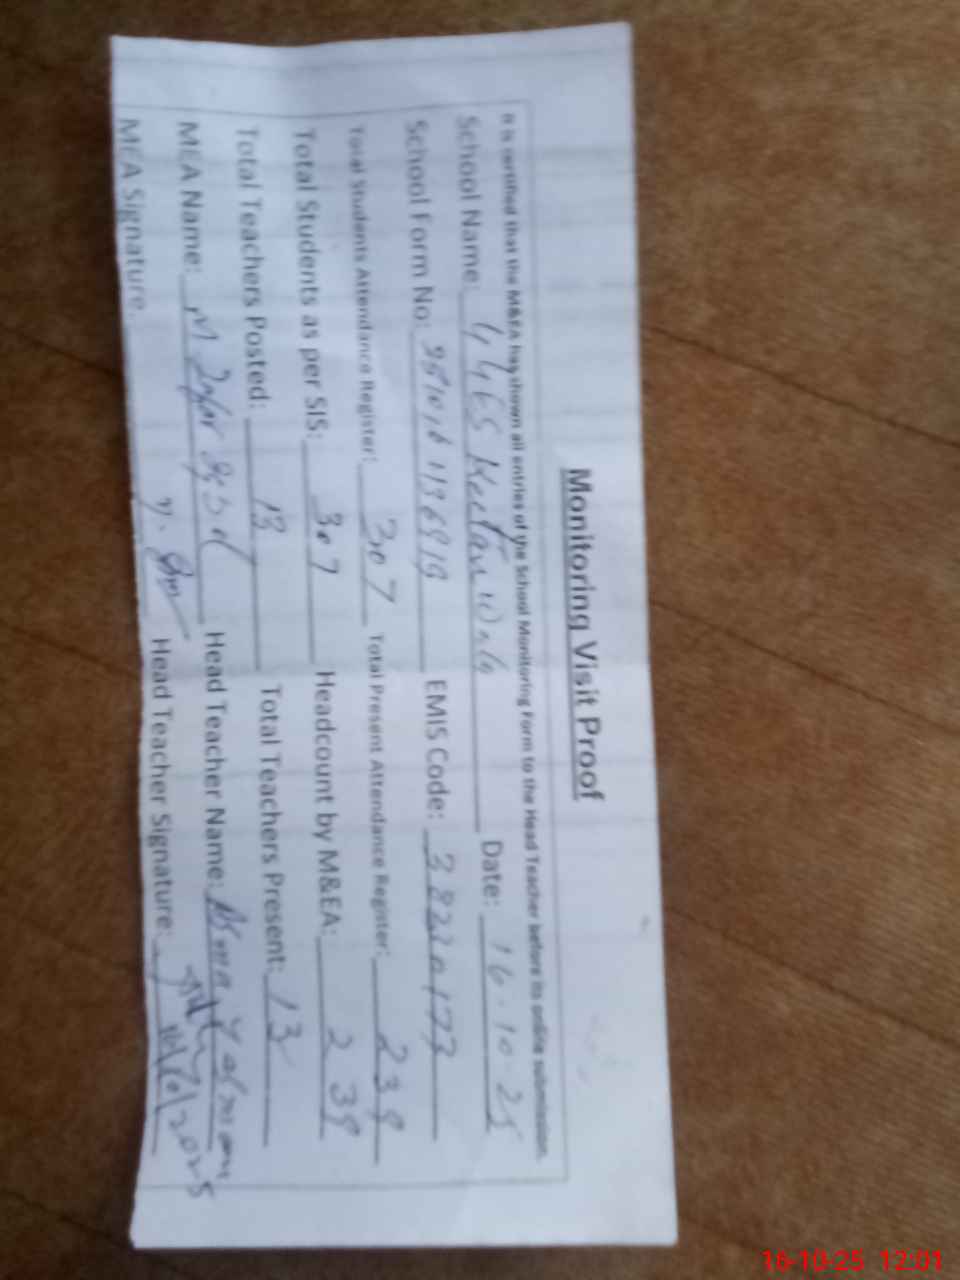 Monitoring Visit Proof
It is certified that the M&EA has shown all entries of the School Monitoring Form to the Head Teacher before its online submission.
School Name: Date: 16-10-25
School Form No: EMIS Code: 38220173
Total Students Attendance Register: 307 Total Present Attendance Register: 239
Total Students as per SIS: 307 Headcount by M&EA: 239
Total Teachers Posted: 13 Total Teachers Present: 13
MEA Name: M Head Teacher Name: Asma Yasmeen
MEA Signature: Head Teacher Signature:
16-10-25 12:01